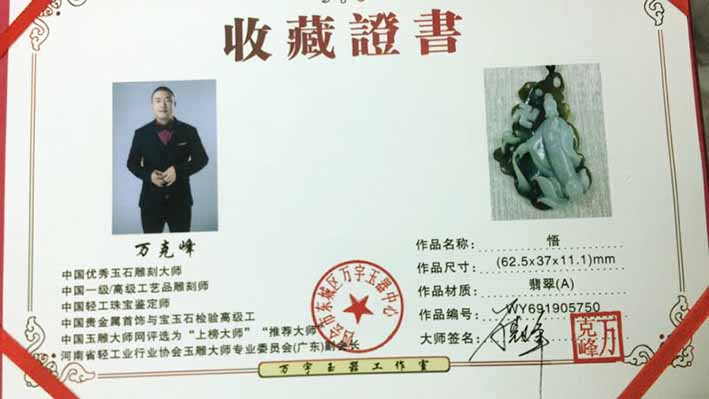 收藏證書
万克峰
中国优秀玉石雕刻大师
中国一级/高级工艺品雕刻师
中国轻工珠宝鉴定师
中国贵金属首饰与宝玉石检验高级工
中国玉雕大师网评选为“上榜大师”“推荐大师”
河南省轻工业行业协会玉雕大师专业委员会(广东)副会长
四会市东城区万宇玉器中心
作品名称: 悟
作品尺寸: (62.5x37x11.1)mm
作品材质: 翡翠(A)
作品编号: WY691905750
大师签名: 万克峰
万克峰
万宇玉器工作室